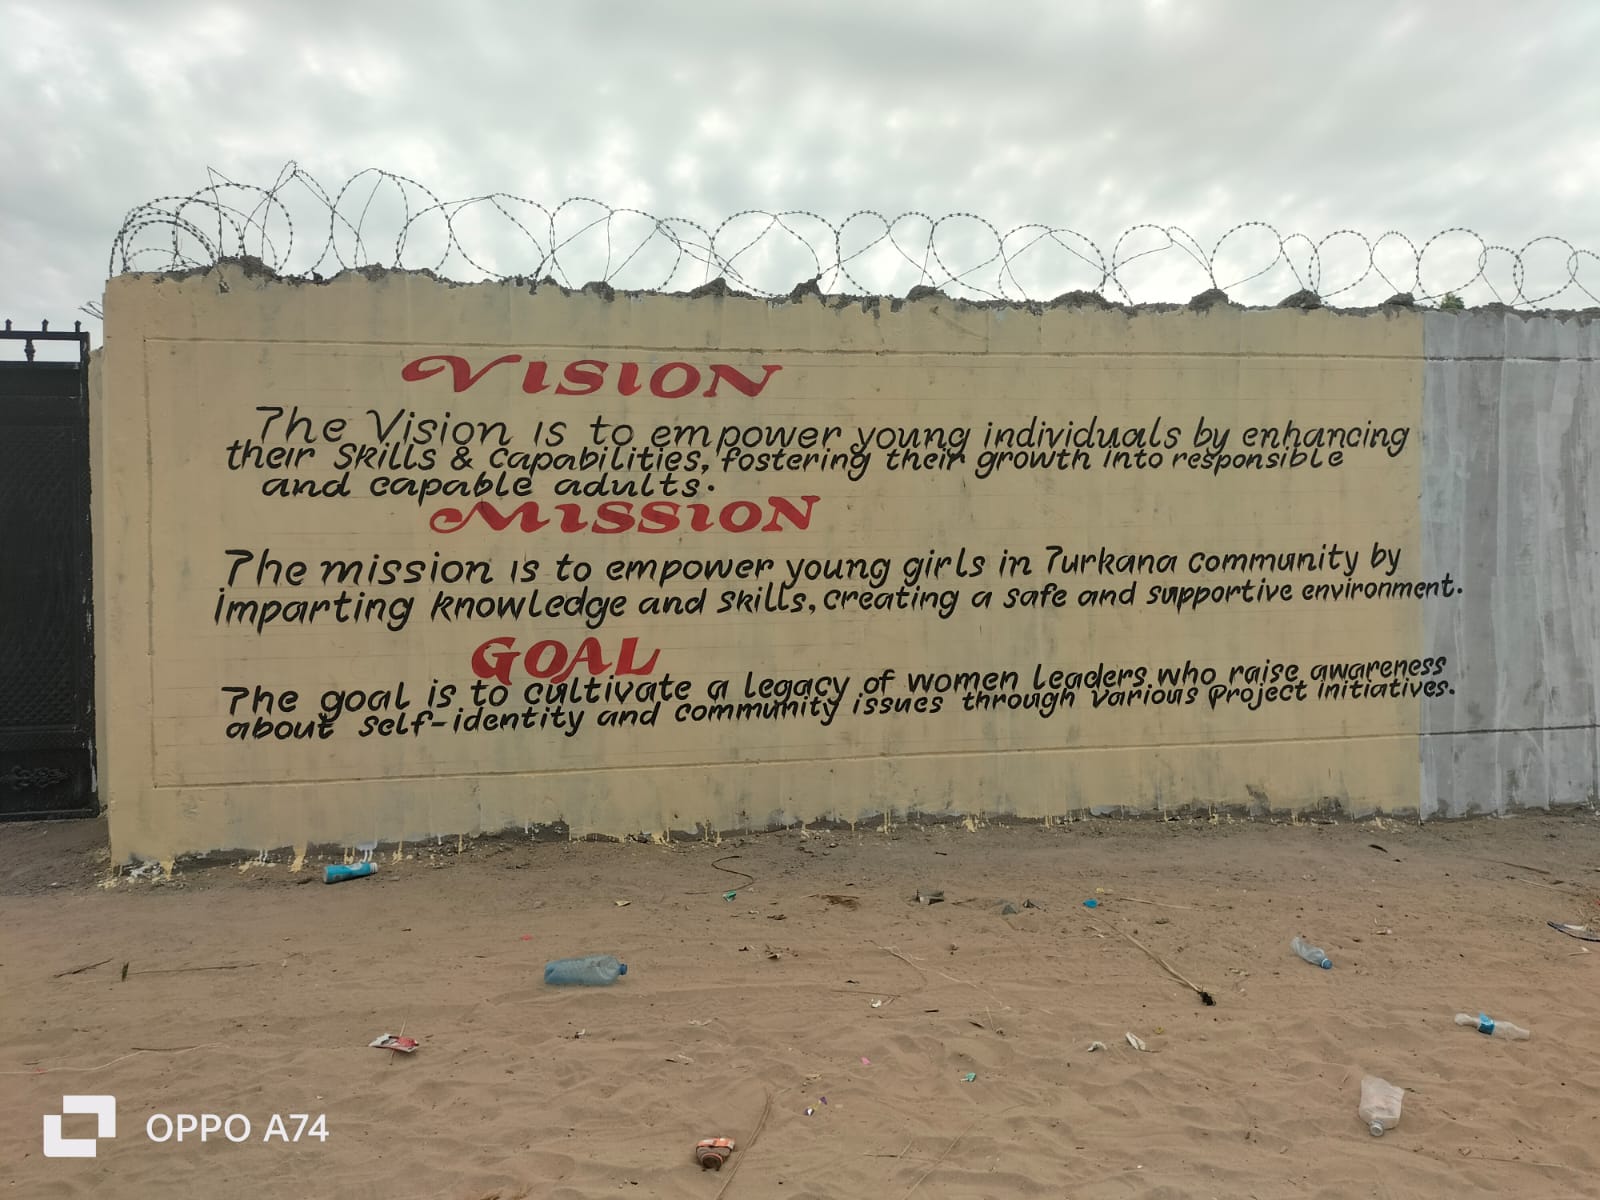 VISION
The Vision is to empower young individuals by enhancing
their Skills & Capabilities, fostering their growth into responsible
and capable adults.
MISSION
The mission is to empower young girls in Turkana community by
imparting knowledge and skills, creating a safe and supportive environment.
GOAL
The goal is to cultivate a legacy of women leaders who raise awareness
about self-identity and community issues through various Project initiatives.
OPPO A74